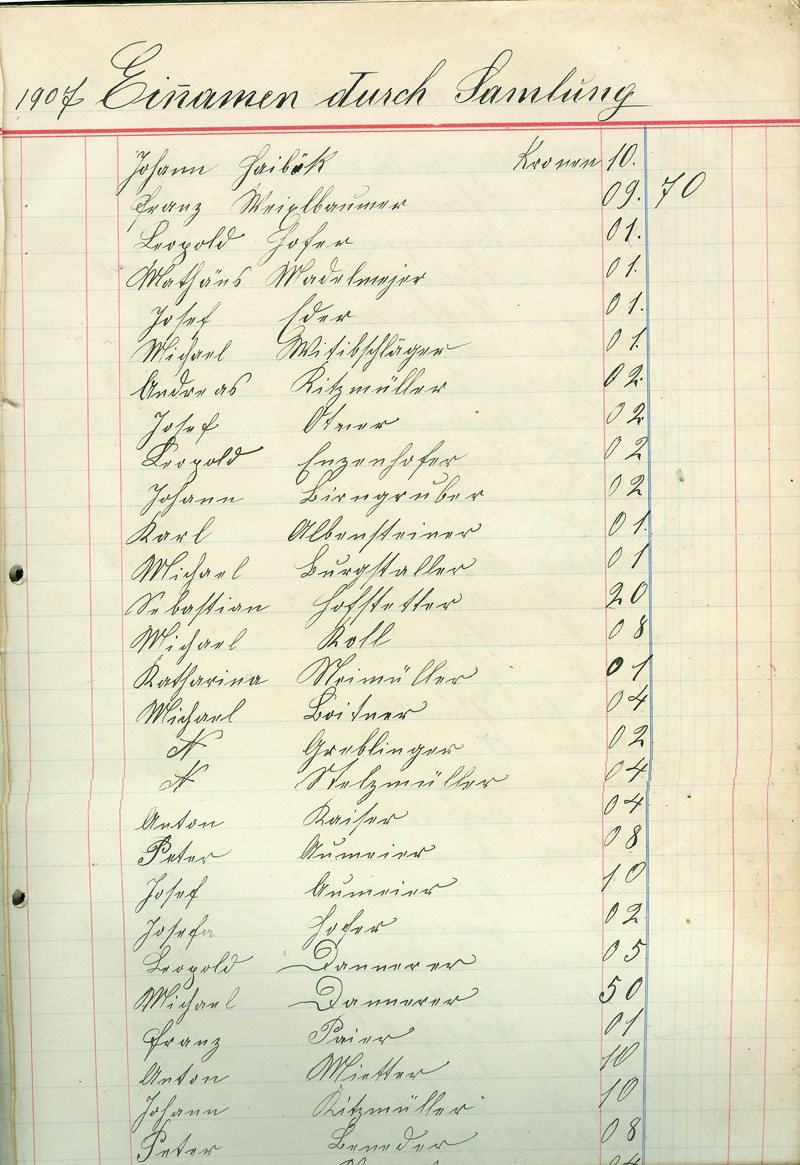 1907 Einnamen durch Samlung
Johann Haibök Kronen 10.
Franz Weixlbaumer 09. 70
Leopold Hofer 01.
Mathäus Madelmejer 01.
Josef Eder 01.
Michael Witibschläger 01.
Andreas Kitzmüller 02.
Josef 02
Leopold Enzenhofer 02
Johann Birngruber 02
Karl Albensteiner 01.
Michael Burgstaller 01
Sebastian Hofstetter 20
Michael Koll 08
Katharina Neimüller 01
Michael Boitner 04
N Greblinger 02
N Stelzmüller 04
Anton Kaiser 04
Peter Aumeier 08
Josef Aumeier 10
Josefa Hofer 02
Leopold Dannerer 05
Michael Dannerer 50
Franz Paier 01
Anton Mietter 10
Johann Kitzmüller 10
Peter Beneder 08
04